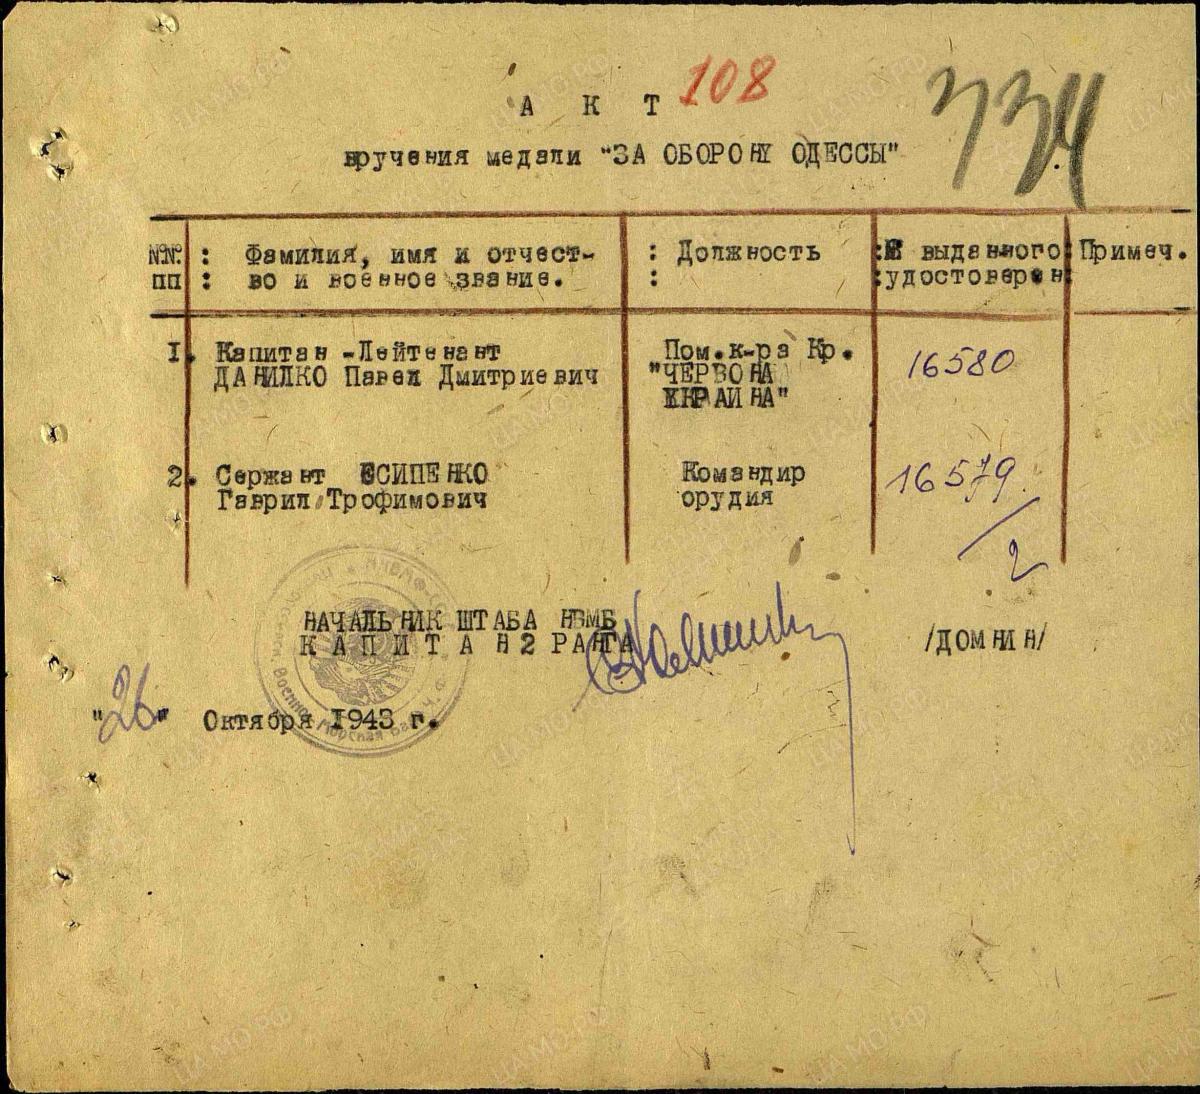 108
334
А К Т
вручения медали "ЗА ОБОРОНУ ОДЕССЫ"
№№ : Фамилия, имя и отчест- : Должность :№ выданного: Примеч.
пп : во и военное звание. : :удостоверен:
1. Капитан -Лейтенант Пом.к-ра Кр. 16580
ДАНИЛКО Павел Дмитриевич "ЧЕРВОНА
УКРАИНА"
2. Сержант ЕСИПЕНКО Командир 16579
Гаврил Трофимович орудия
2
НАЧАЛЬНИК ШТАБА НВМБ
КАПИТАН 2 РАНГА /ДОМНИН/
"26" Октября 1943 г.
Военно Морская База
ЦАМО РФ